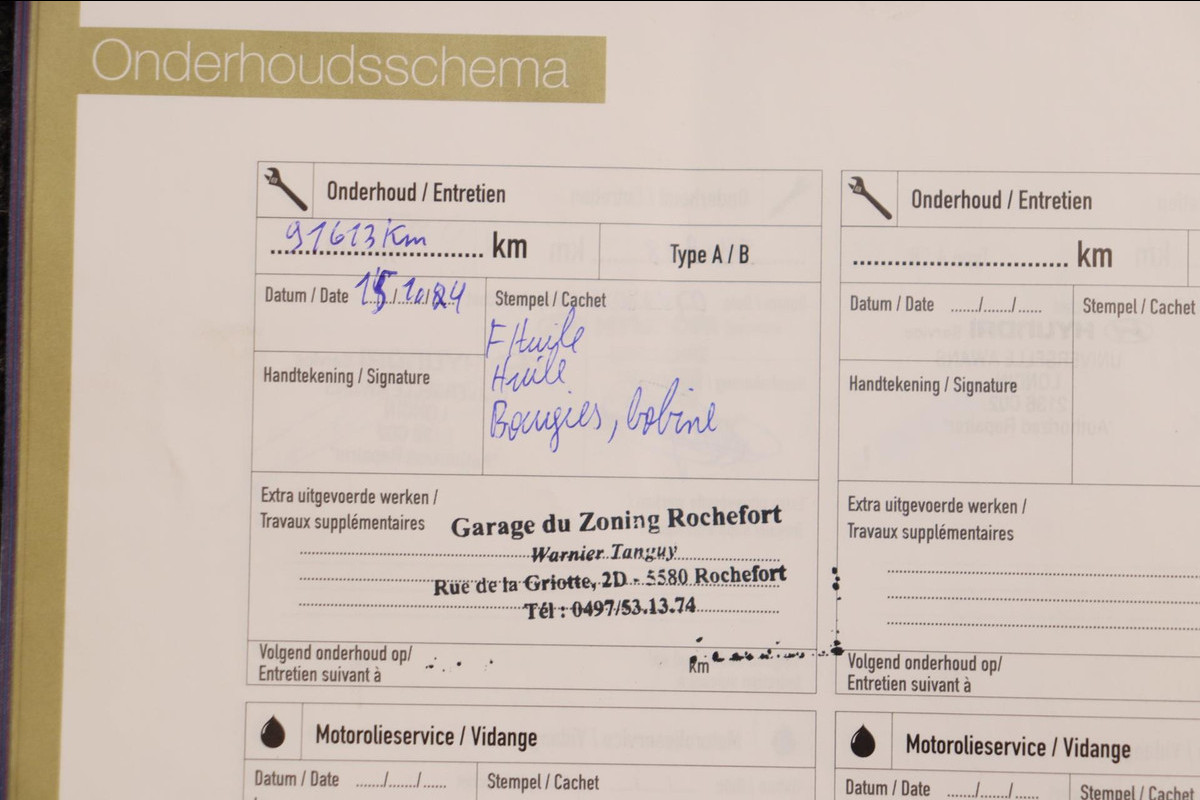 Onderhoudsschema
Onderhoud / Entretien
91613 Km km
Type A / B
Datum / Date 15/10/24
Stempel / Cachet
F Huile
Huile
Bougies, bobine
Handtekening / Signature
Extra uitgevoerde werken /
Travaux supplémentaires
Garage du Zoning Rochefort
Warnier Tanguy
Rue de la Griotte, 2D - 5580 Rochefort
Tél : 0497/53.13.74
Volgend onderhoud op/
Entretien suivant à
km
Motorolieservice / Vidange
Datum / Date ....../....../......
Stempel / Cachet
Onderhoud / Entretien
km
Datum / Date ....../....../......
Stempel / Cachet
Handtekening / Signature
Extra uitgevoerde werken /
Travaux supplémentaires
Volgend onderhoud op/
Entretien suivant à
Motorolieservice / Vidange
Datum / Date ....../....../......
Stempel / Cachet